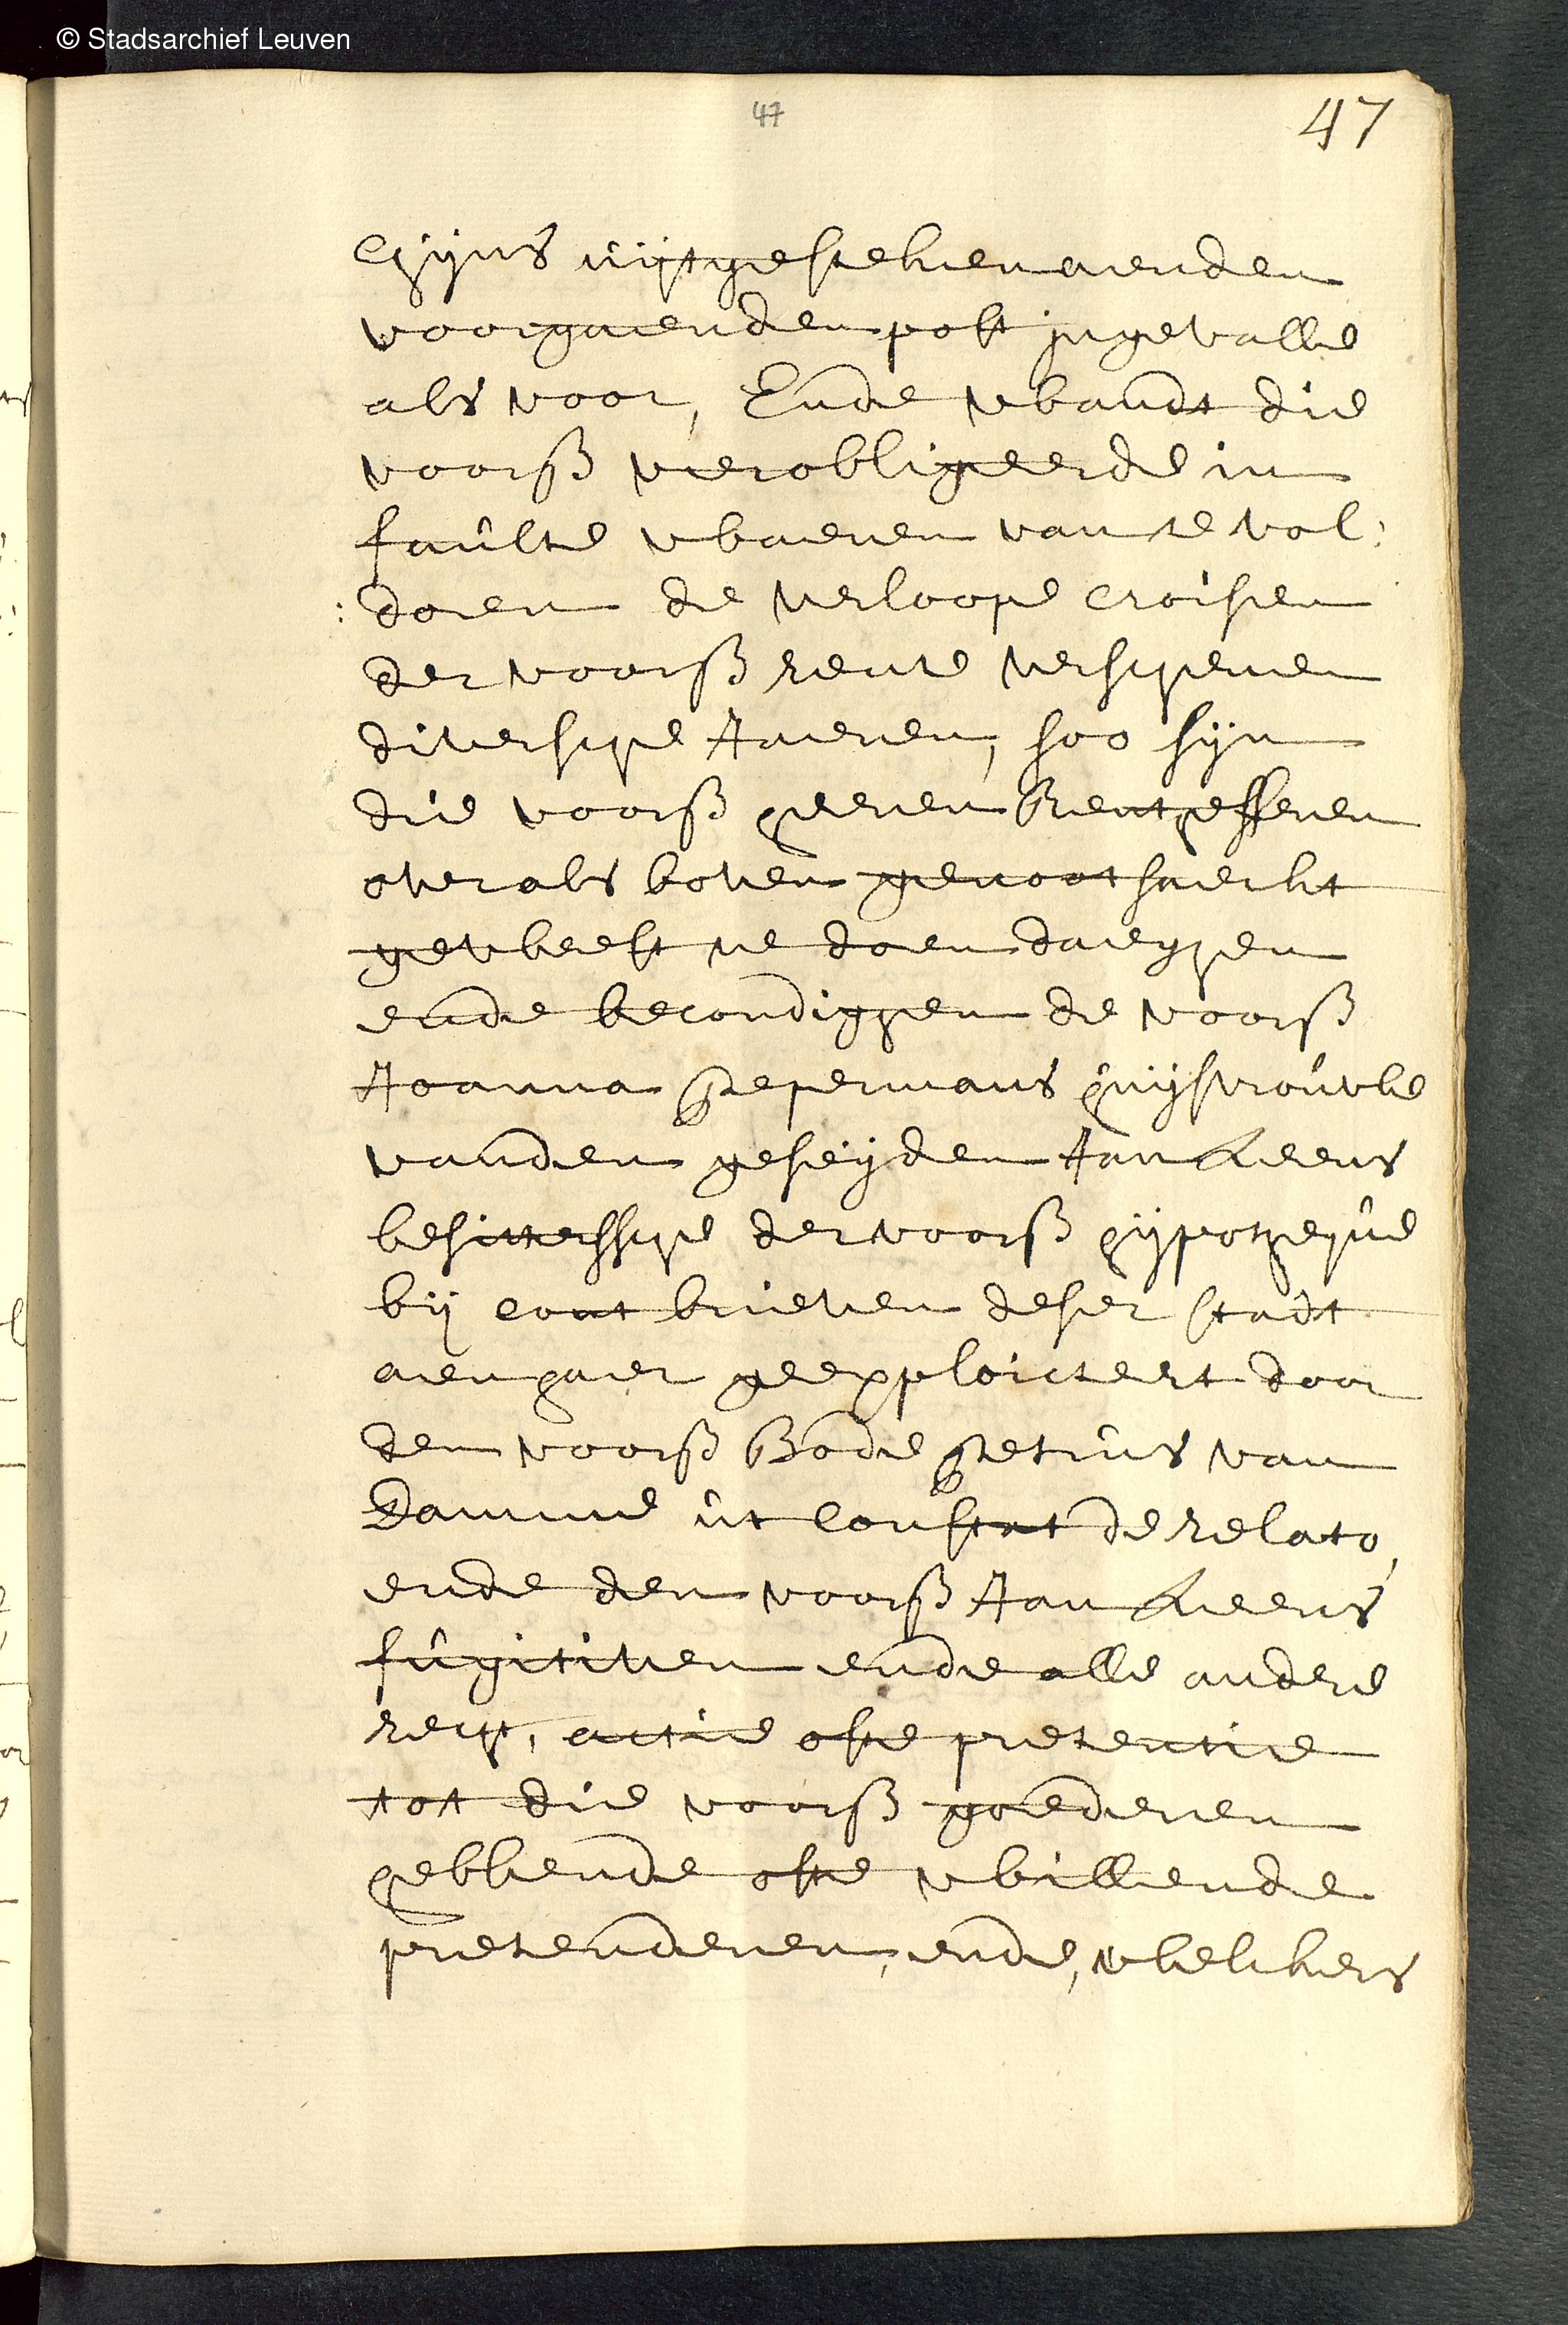 © Stadsarchief Leuven
47
47
chijns uijtgesteken aenden
voorgaenden post ingevalle
als voor, Ende wandt die
voorss verobligeerde in
faulte waeren van te vol:
:doen de verloope croisen
der voorss rente verschenen
diversche Jaeren, soo sijn
die voorss heeren Rentheffers
over als boven genootsaeckt
geweest te doen daeghen
ende becondighen de voorss
Joanna Pepermans huijsvrouwe
vanden geseijden Jan Leens
besittersche der voorss hijpotheque
bij cont brieven deser stadt
aen haer geexploicteert door
den voorss Bode Petrus van
Damme ut constat de relato,
ende den voorss Jan Leens
fugitiven ende alle andere
recht, actie ofte pretentie
tot die voorss goederen
hebbende ofte willende
pretenderen, ende, welckers